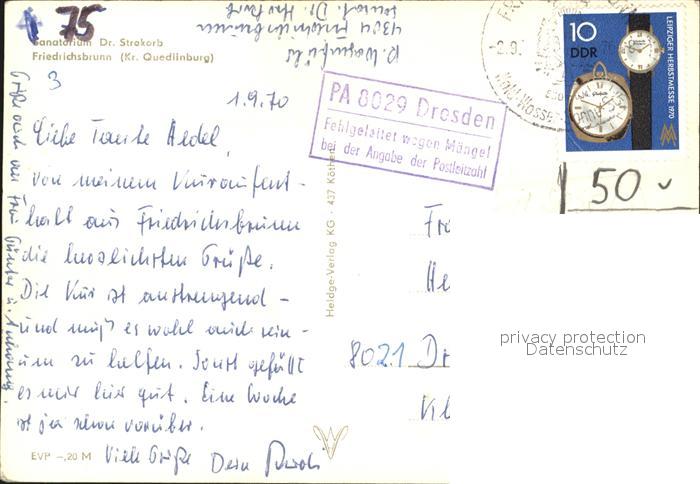 75
Sanatorium Dr. Strokorb
Friedrichsbrunn (Kr. Quedlinburg)
3
1.9.70
Liebe Tante Hedel,
von meinem Kuraufent-
halt aus Friedrichsbrunn
die herzlichsten Grüße.
Die Kur ist anstrengend -
und muß es wohl auch sein -
um zu helfen. Sonst gefällt
es mir hier gut. Eine Woche
ist ja schon vorüber.
Viele Grüße Dein
EVP -,20 M
Grüße auch an Frau
4304 Friedrichsbrunn
Sanat. Dr.
PA 8029 Dresden
Fehlgeleitet wegen Mängel
bei der Angabe der Postleitzahl
Heldge-Verlag KG · 437 Köthen
10
DDR
LEIPZIGER HERBSTMESSE 1970
50
8021 Dr
privacy protection
Datenschutz